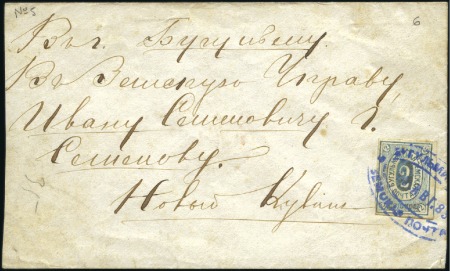 № 5
6
Въ г. Бугульму.
Въ Земскую Управу,
Ивану Семеновичу Г.
Семенову.
Новый Кувакъ
ЗЕМСКАЯ ПОЧТА